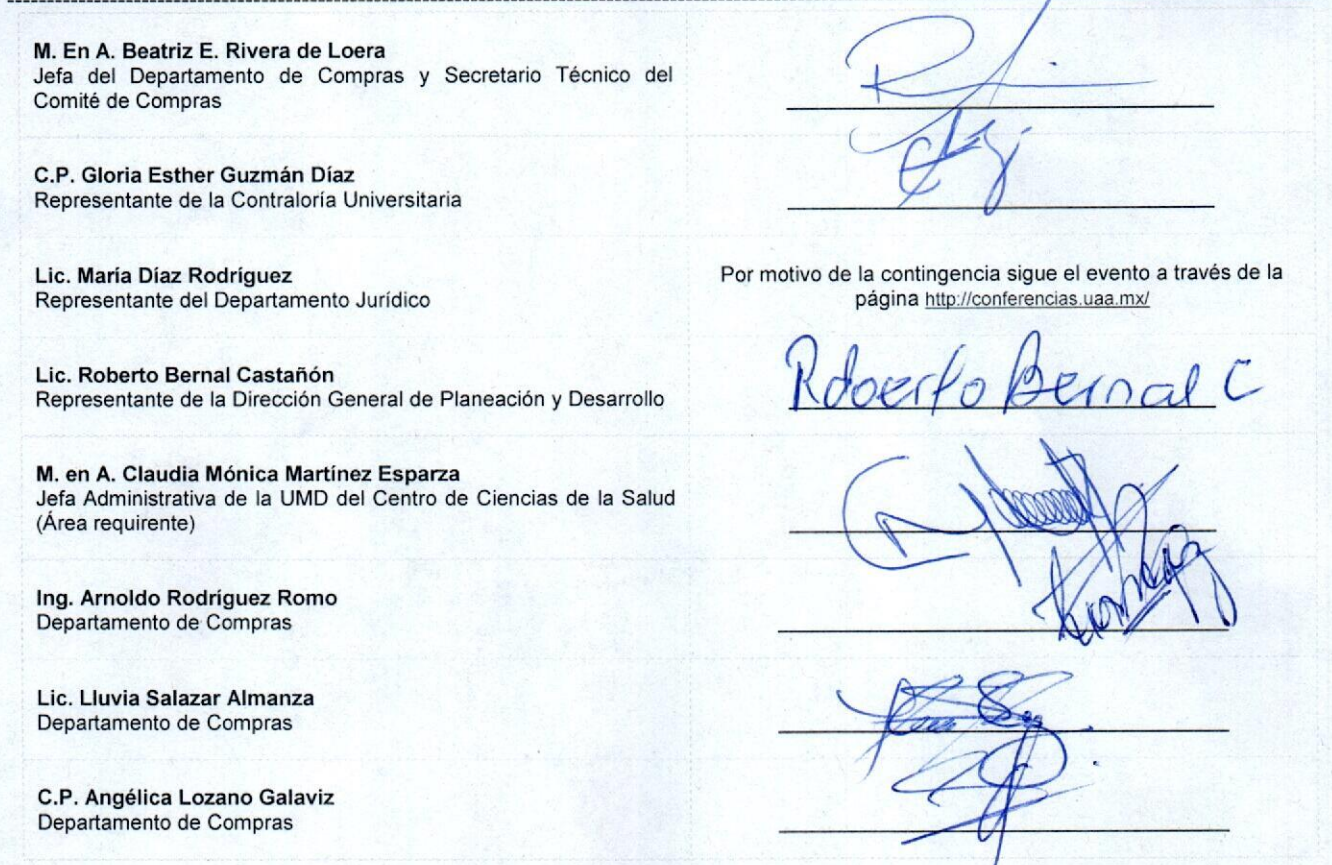 M. En A. Beatriz E. Rivera de Loera
Jefa del Departamento de Compras y Secretario Técnico del
Comité de Compras
C.P. Gloria Esther Guzmán Díaz
Representante de la Contraloría Universitaria
Lic. María Díaz Rodríguez
Representante del Departamento Jurídico
Por motivo de la contingencia sigue el evento a través de la
página http://conferencias.uaa.mx/
Lic. Roberto Bernal Castañón
Representante de la Dirección General de Planeación y Desarrollo
Roberto Bernal C
M. en A. Claudia Mónica Martínez Esparza
Jefa Administrativa de la UMD del Centro de Ciencias de la Salud
(Área requirente)
Ing. Arnoldo Rodríguez Romo
Departamento de Compras
Lic. Lluvia Salazar Almanza
Departamento de Compras
C.P. Angélica Lozano Galaviz
Departamento de Compras